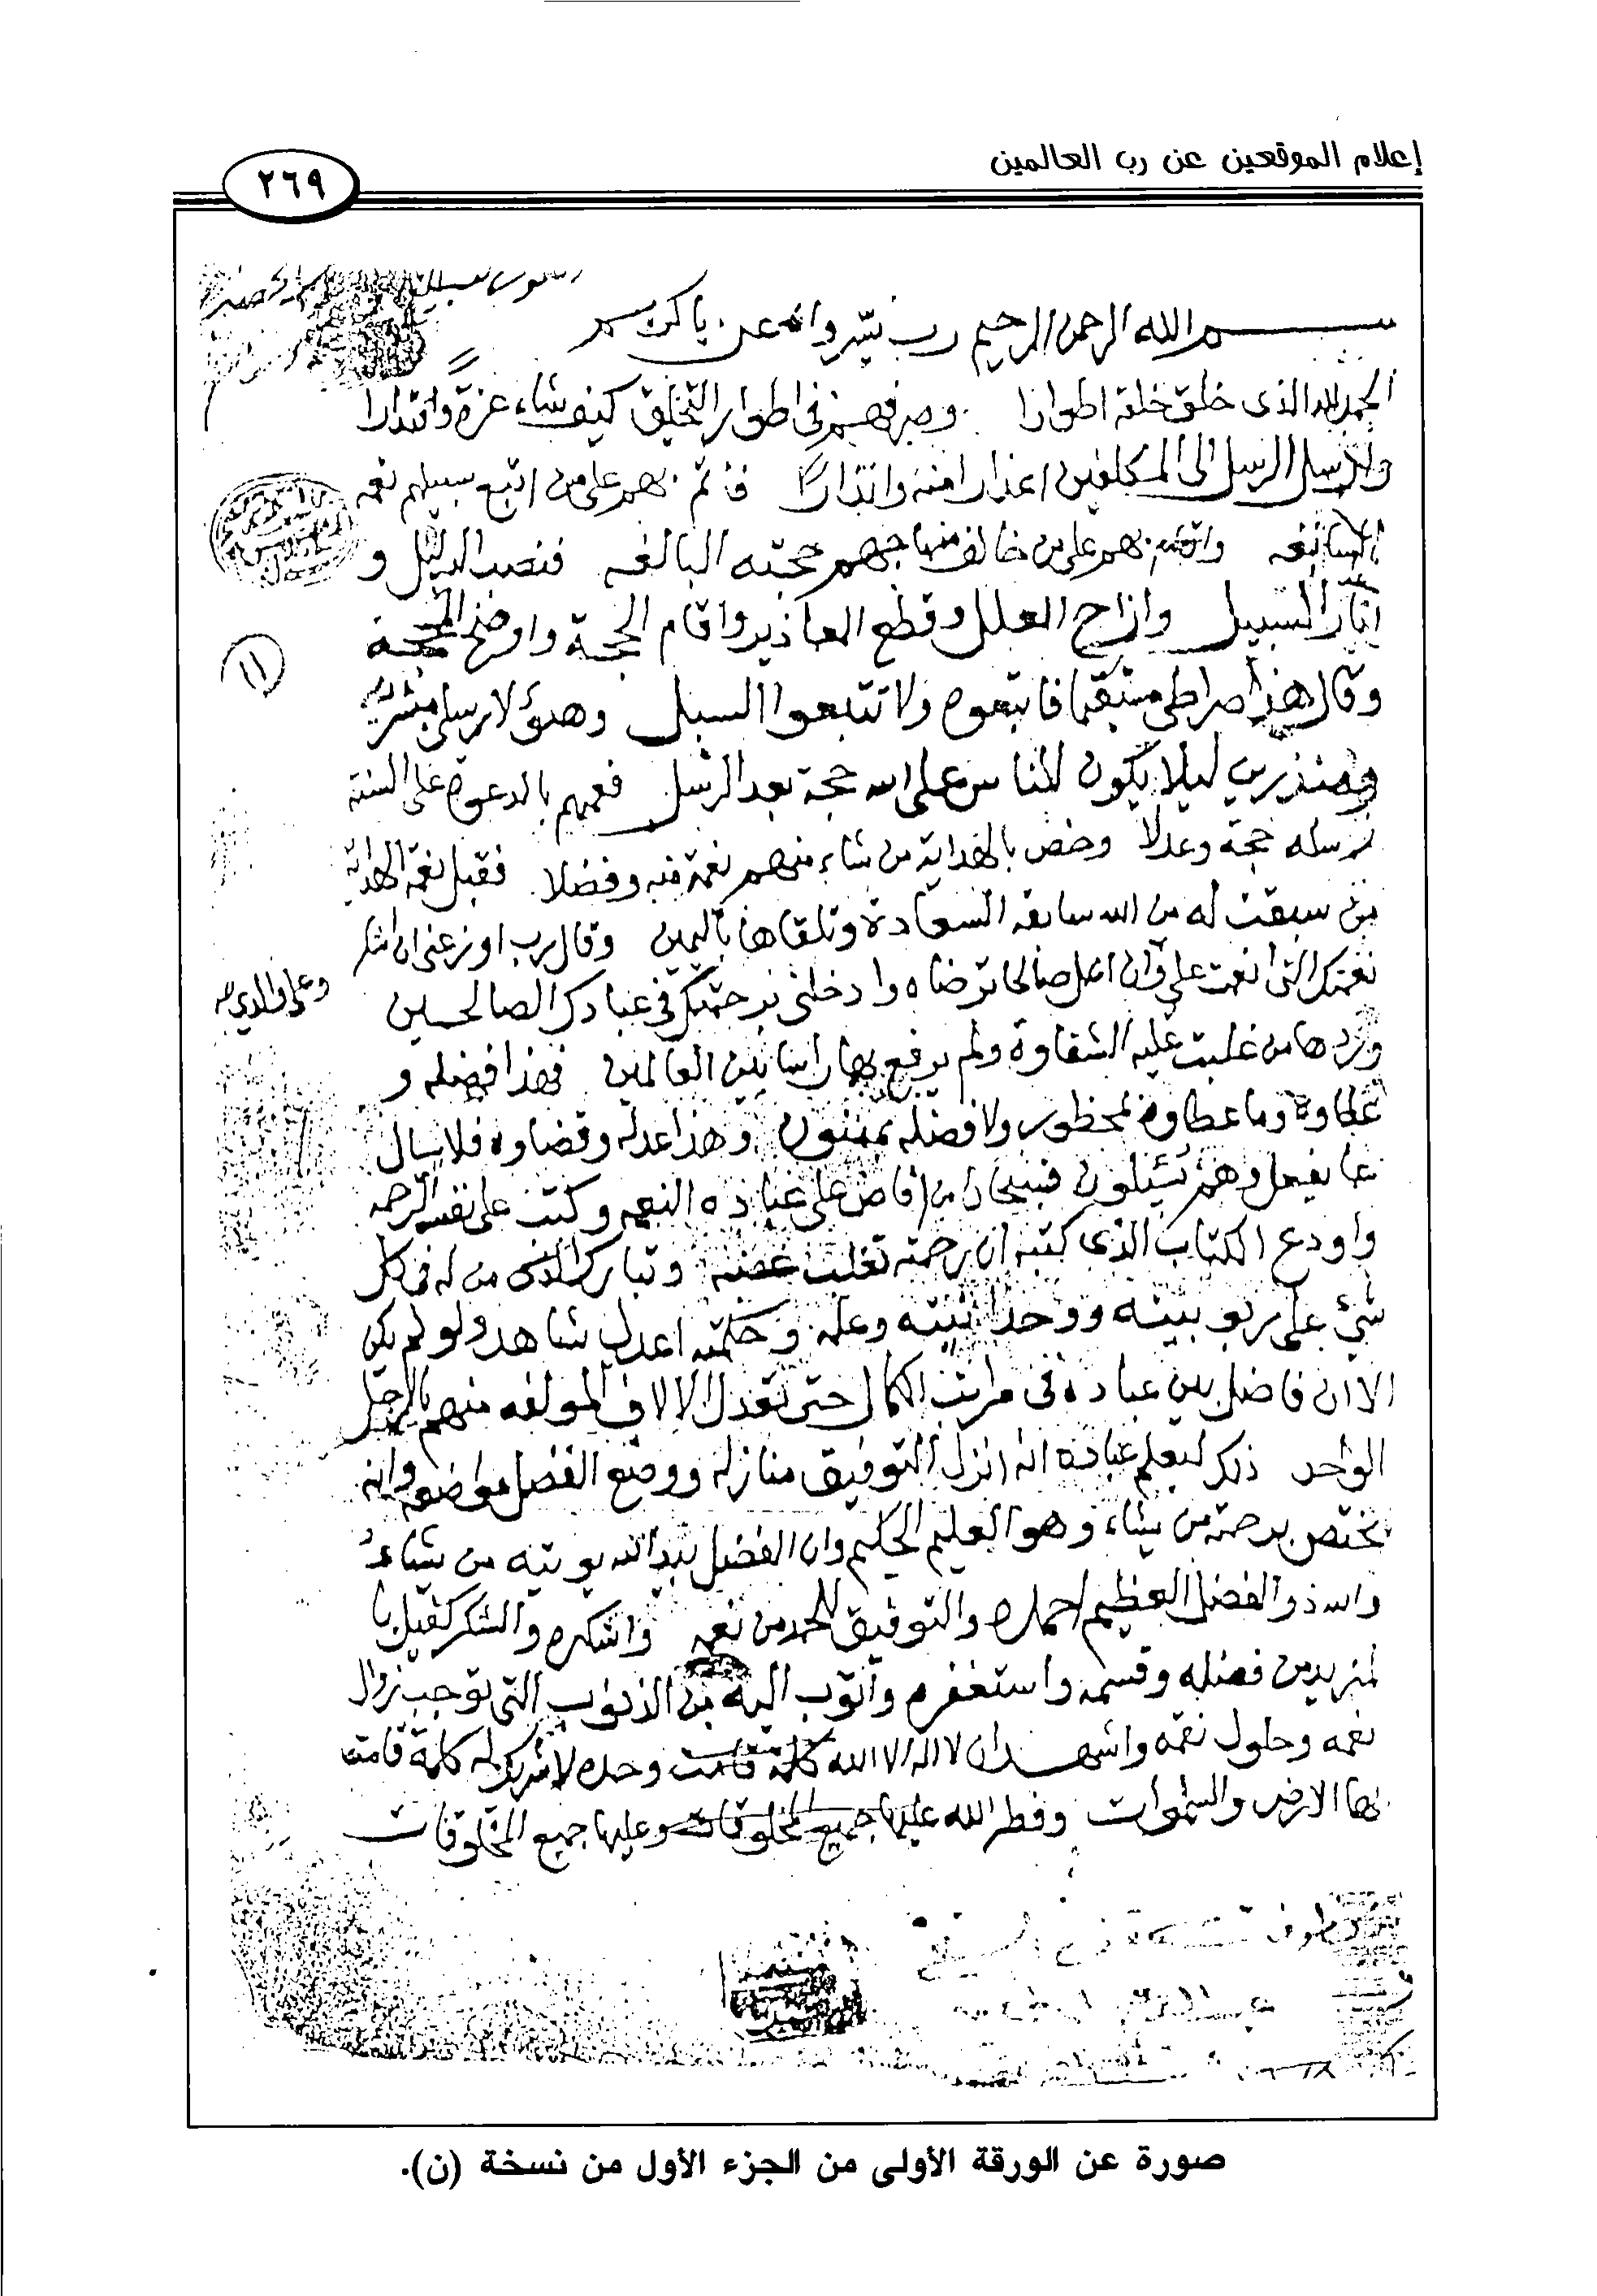 إعلام الموقعين عن رب العالمين
٢٦٩
بسم الله الرحمن الرحيم رب يسر واعن يا كريم
الحمد لله الذى خلق خلقه اطوارا وصرفهم فى اطوار التخليق كيف شاء عزة واقتدارا
وارسل الرسل الى المكلفين اعذارا منه وانذارًا فاتم بهم على من اتبع سبيلهم نعمه
السابغه واقام بهم على من خالف منهاجهم حجته البالغه فنصب الدليل و
انار السبيل وازاح العلل وقطع المعاذير واقام الحجة واوضح المحجة
وقال هذا صراطى مستقيما فاتبعوه ولا تتبعوا السبل وهؤلا رسلى مبشرين
ومنذرين ليلا يكون للناس على الله حجة بعد الرسل فعمهم بالدعوة على السنة
رسله حجة وعدلا وخص بالهداية من شاء منهم نعمة منه وفضلا فقبل نعمة الهداية
من سبقت له من الله سابقه السعادة وتلقاها باليمين وقال رب اوزعنى ان اشكر
نعمتك التى انعمت علي وان اعمل صالحا ترضاه وادخلنى برحمتك فى عبادك الصالحين
وعلى والدي
وردها من غلبت عليه الشقاوة ولم يرفع بها راسا بين العالمين فهذا فضله و
عطاوه وما عطاوه بمحظور ولا فضله بممنون وهذا عدله وقضاوه فلا يسال
عما يفعل وهم يُسئلون فسبحان من افاض على عباده النعمه وكتب على نفسه الرحمه
واودع الكتاب الذى كتبه ان رحمته تغلب غضبه وتبارك الذى من له فى كل
شئ على ربوبيته ووحدانيته وعلمه وحكمته اعدل شاهد ولو لم يكن
الا ان فاضل بين عباده فى مراتب الكمال حتى تعدل الالاف المولفه منهم بالرجل
الواحد ذلك ليعلم عباده انه انزل التوفيق منازله ووضع الفضل مواضعه وانه
يختص برحمته من يشاء وهو العليم الحكيم وان الفضل بيد الله يوتيه من يشاء
والله ذو الفضل العظيم احمده والتوفيق للحمد من نعمه واشكره والشكر كفيل با
لمزيد من فضله وقسمه واستغفره واتوب اليه من الذنوب التى توجب زوال
نعمه وحلول نقمه واشهد ان لا اله الا الله كلمة قامت وحده لا شريك له كلمة قامت
بها الارض والسموات وفطر الله عليها جميع المخلوقات وعليها جميع المخلوقات
١١
صورة عن الورقة الأولى من الجزء الأول من نسخة (ن).